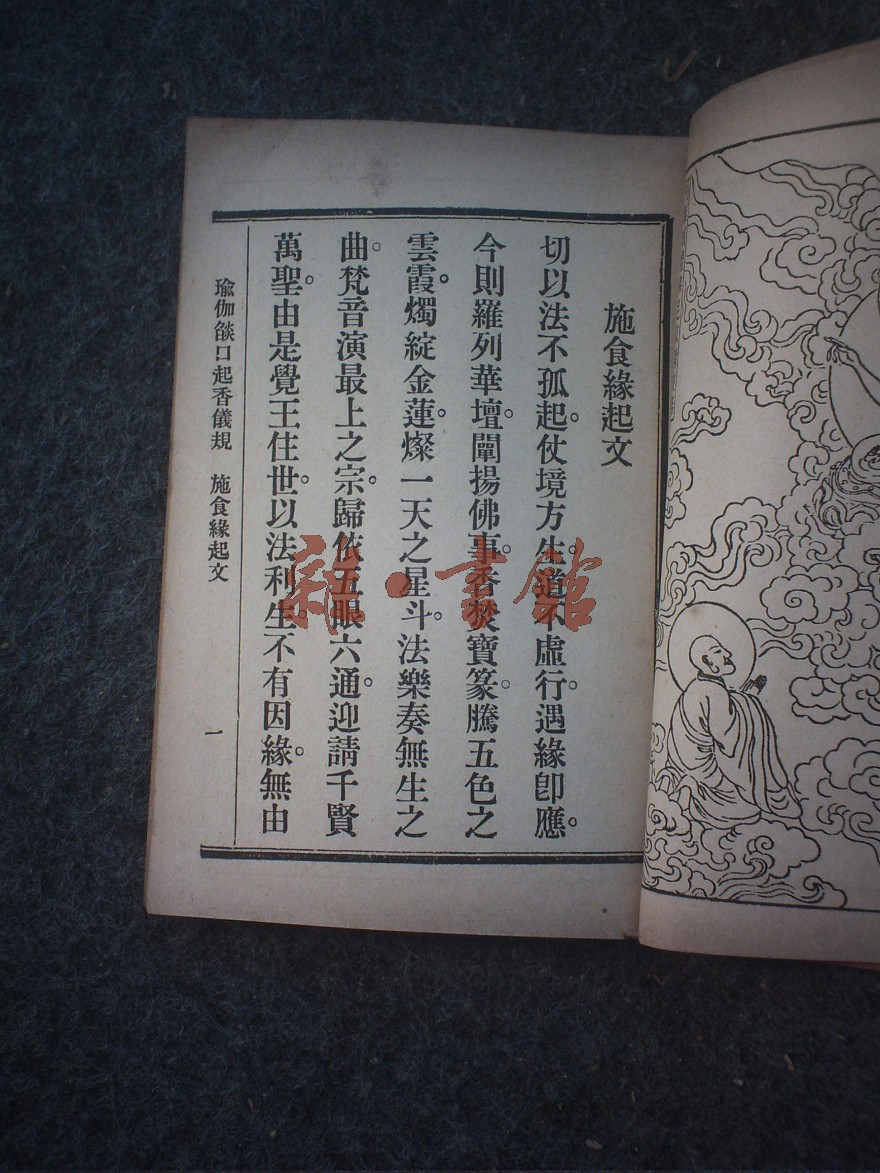 施食緣起文
切以法不孤起。仗境方生。道不虛行。遇緣卽應。
今則羅列華壇。闡揚佛事。香焚寶篆。騰五色之
雲霞。燭綻金蓮。燦一天之星斗。法樂奏無生之
曲。梵音演最上之宗。歸依五眼六通。迎請千賢
萬聖。由是覺王住世。以法利生。不有因緣。無由
瑜伽燄口起香儀規 施食緣起文
一
雜·書館